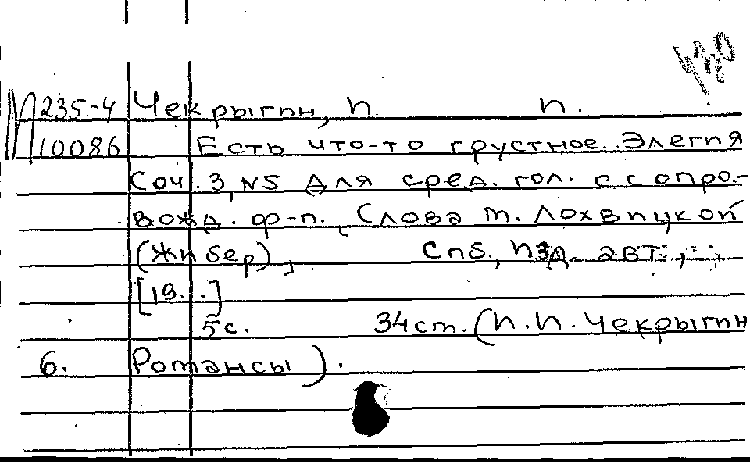 420
М 235-4 Чекрыгин, И И.
10086 Есть что-то грустное. Элегия
Соч. 3, №5 Для сред. гол. с сопро-
вожд. ф-п., Слова М. Лохвицкой
(Жибер),
Спб., Изд. авт.,
[19...]
5 с. 34 см. (И. И. Чекрыгин
6. Романсы).